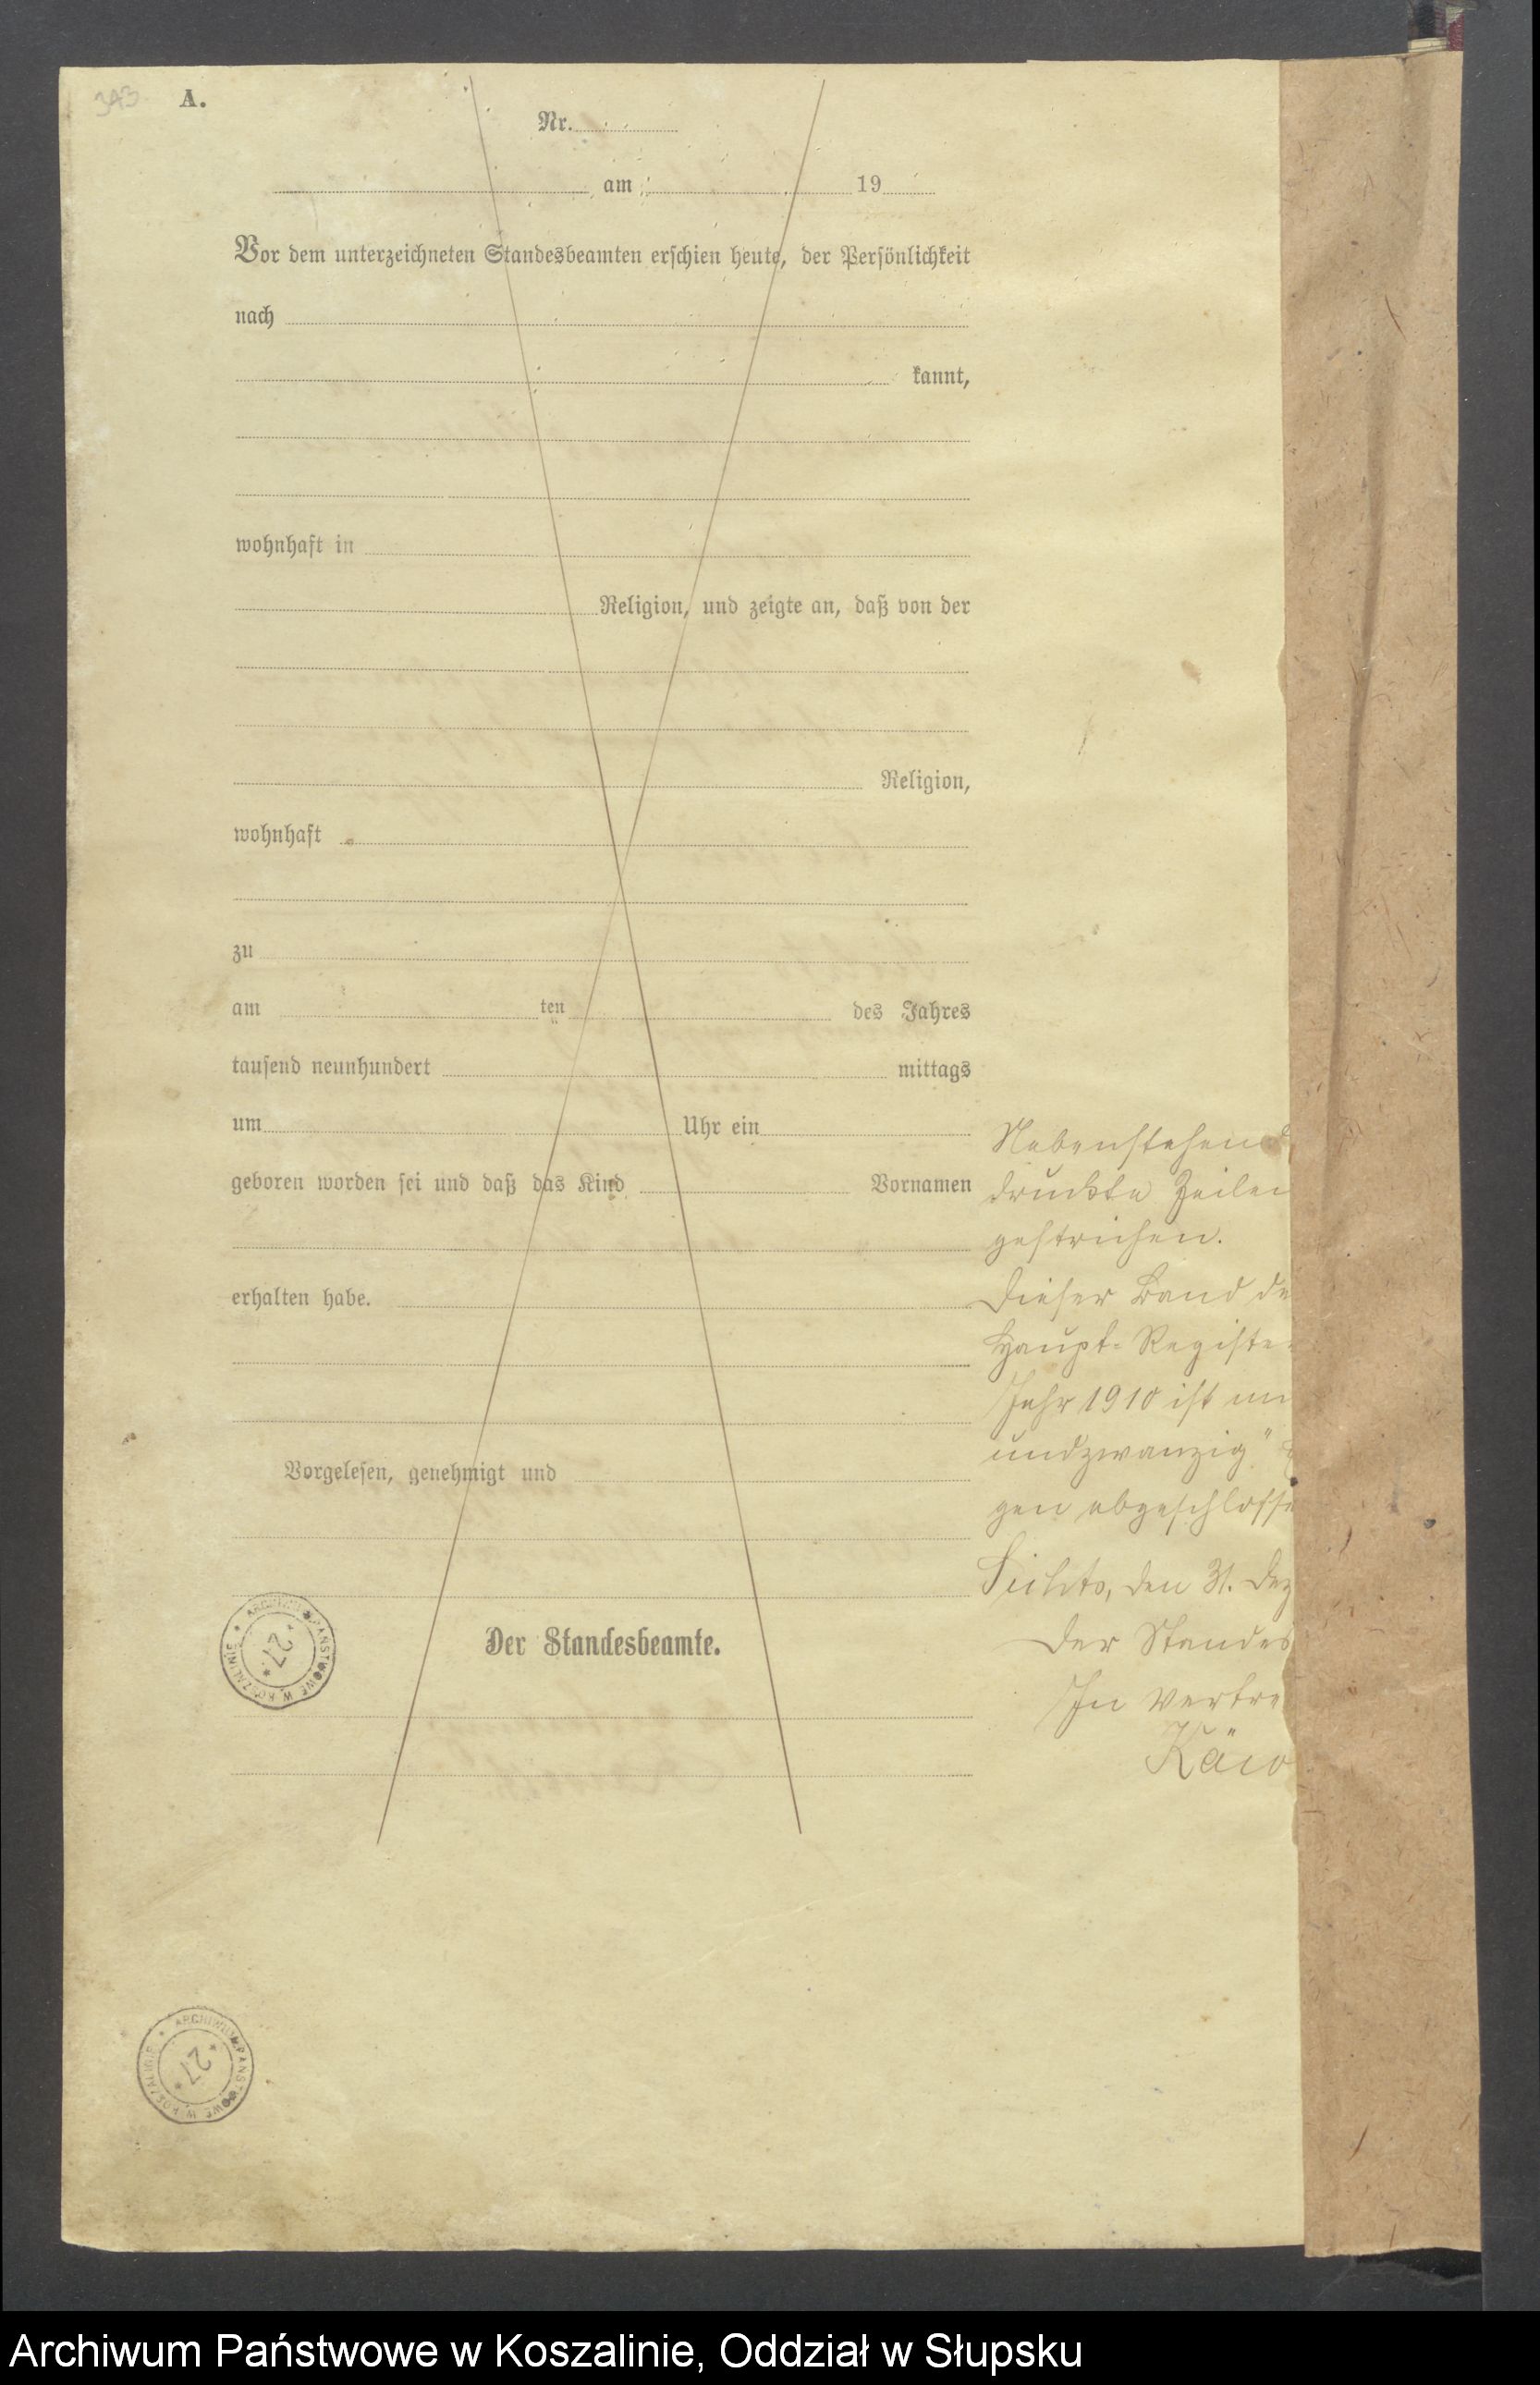 A.
Nr.
am 19
Vor dem unterzeichneten Standesbeamten erschien heute, der Persönlichkeit
nach
kannt,
wohnhaft in
Religion, und zeigte an, daß von der
Religion,
wohnhaft
zu
am ten des Jahres
tausend neunhundert mittags
um Uhr ein
geboren worden sei und daß das Kind Vornamen
erhalten habe.
Vorgelesen, genehmigt und
Der Standesbeamte.
Nebenstehend
druckte Zeilen
gestrichen.
Dieser Band de
Haupt-Register
Jahr 1910 ist
undzwanzig"
gen abgeschlosse
den 31. Dez
Der Standes
In Vertre
ARCHIWUM PAŃSTWOWE W KOSZALINIE
* 27 *
ARCHIWUM PAŃSTWOWE W KOSZALINIE
* 27 *
Archiwum Państwowe w Koszalinie, Oddział w Słupsku